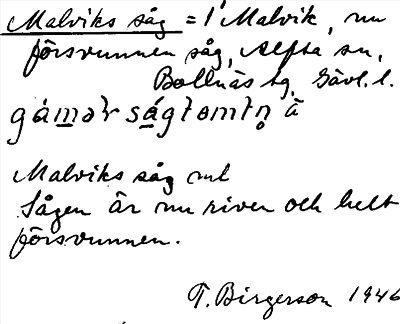 Malviks såg = 1 Malvik, nu
försvunnen såg, Alfta sn,
Bollnäs tg, Gävl. l.
gámər ságtomtn̥ å
Malviks såg nml
Sågen är nu riven och helt
försvunnen.
T. Birgerson 1946